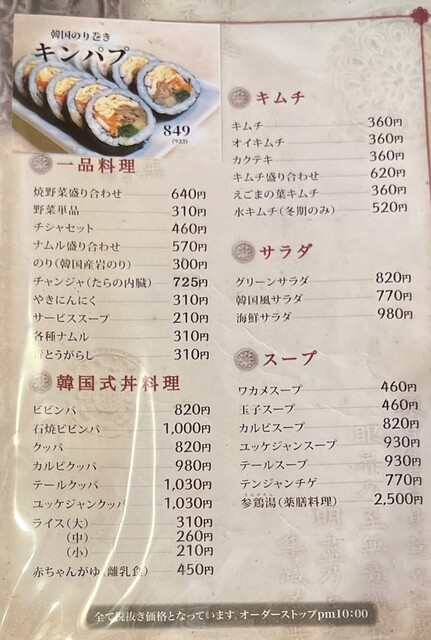 韓国のり巻き
キンパプ
849
(933)
一品料理
焼野菜盛り合わせ 640円
野菜単品 310円
チシャセット 460円
ナムル盛り合わせ 570円
のり(韓国産岩のり) 300円
チャンジャ(たらの内臓) 725円
やきにんにく 310円
サービススープ 210円
各種ナムル 310円
青とうがらし 310円
韓国式丼料理
ビビンバ 820円
石焼ビビンバ 1,000円
クッパ 820円
カルビクッパ 980円
テールクッパ 1,030円
ユッケジャンクッパ 1,030円
ライス(大) 310円
(中) 260円
(小) 210円
赤ちゃんがゆ(離乳食) 450円
キムチ
キムチ 360円
オイキムチ 360円
カクテキ 360円
キムチ盛り合わせ 620円
えごまの葉キムチ 360円
水キムチ(冬期のみ) 520円
サラダ
グリーンサラダ 820円
韓国風サラダ 770円
海鮮サラダ 980円
スープ
ワカメスープ 460円
玉子スープ 460円
カルビスープ 820円
ユッケジャンスープ 930円
テールスープ 930円
テンジャンチゲ 770円
参鶏湯(薬膳料理) 2,500円
全て税抜き価格となっています。オーダーストップpm10:00